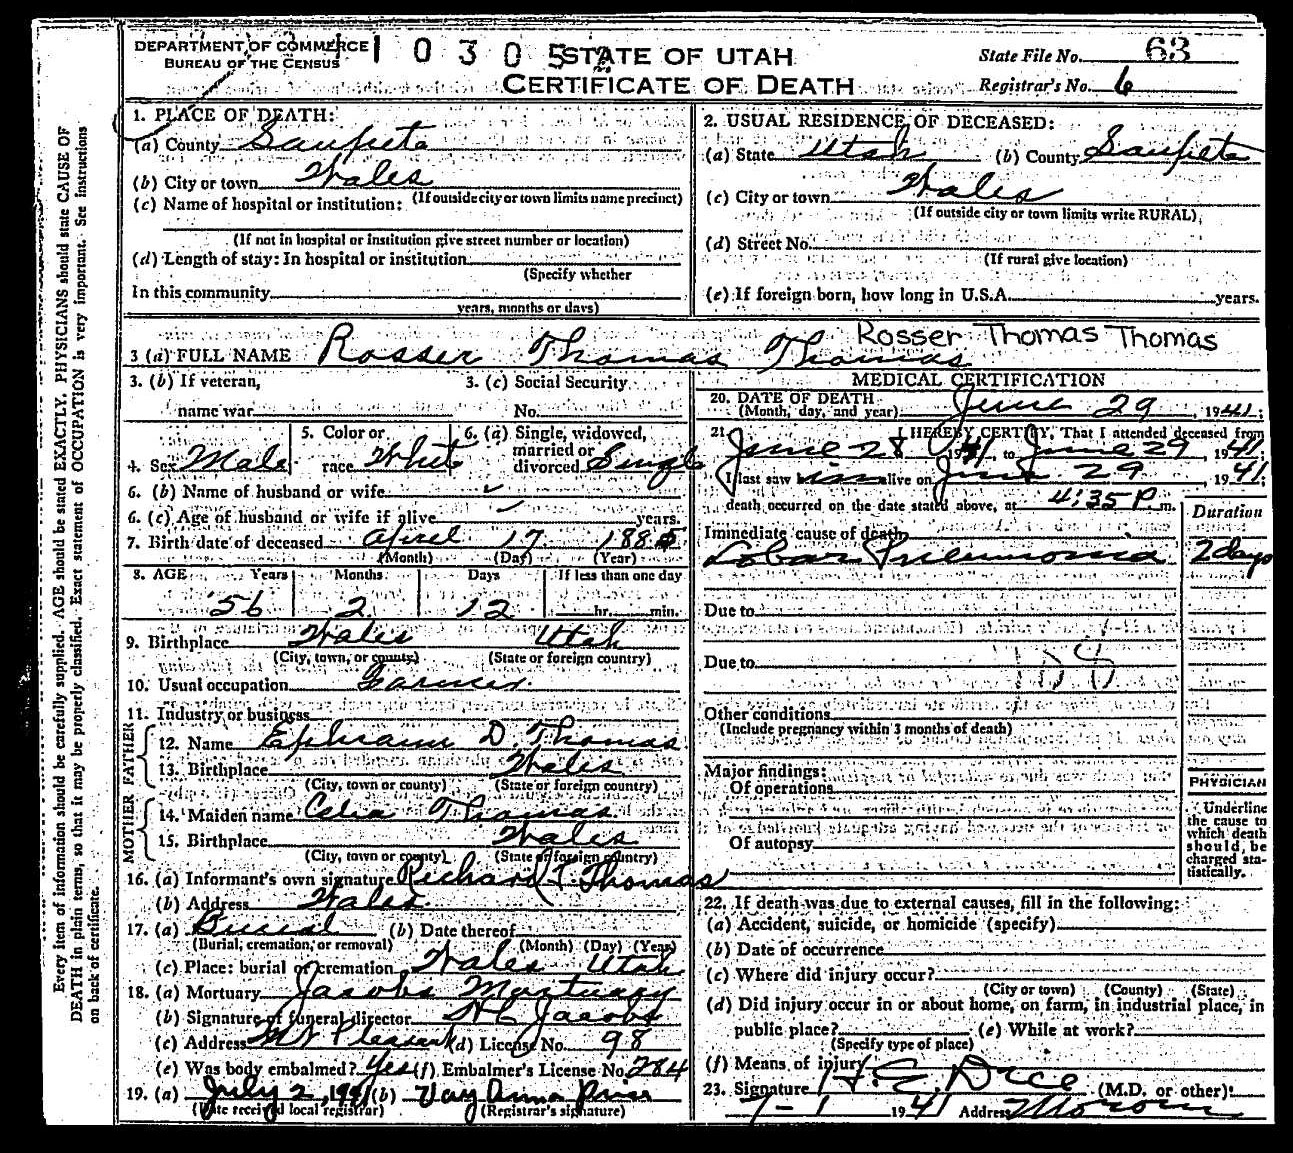 DEPARTMENT OF COMMERCE
BUREAU OF THE CENSUS
4 1 0 3 0 5 2
STATE OF UTAH
CERTIFICATE OF DEATH
State File No. 63
Registrar's No. 6
1. PLACE OF DEATH:
(a) County Sanpete
(b) City or town Wales
(If outside city or town limits name precinct)
(c) Name of hospital or institution:
(If not in hospital or institution give street number or location)
(d) Length of stay: In hospital or institution
(Specify whether
In this community
years, months or days)
2. USUAL RESIDENCE OF DECEASED:
(a) State Utah (b) County Sanpete
(c) City or town Wales
(If outside city or town limits write RURAL)
(d) Street No.
(If rural give location)
(e) If foreign born, how long in U.S.A. years.
3 (a) FULL NAME Rosser Thomas Thomas
Rosser Thomas Thomas
3. (b) If veteran,
name war
3. (c) Social Security
No.
4. Sex Male
5. Color or
race White
6. (a) Single, widowed,
married or
divorced Single
6. (b) Name of husband or wife
6. (c) Age of husband or wife if alive years.
7. Birth date of deceased April 17 1885
(Month) (Day) (Year)
8. AGE Years Months Days If less than one day
56 2 12 hr. min.
9. Birthplace Wales Utah
(City, town, or county) (State or foreign country)
10. Usual occupation Farmer
11. Industry or business
FATHER
12. Name Ephraim D. Thomas
13. Birthplace Wales
(City, town or county) (State or foreign country)
MOTHER
14. Maiden name Celia Thomas
15. Birthplace Wales
(City, town or county) (State or foreign country)
16. (a) Informant's own signature Richard T. Thomas
(b) Address Wales
17. (a) Burial (b) Date thereof
(Burial, cremation, or removal) (Month) (Day) (Year)
(c) Place: burial or cremation Wales Utah
18. (a) Mortuary Jacobs Mortuary
(b) Signature of funeral director H C Jacobs
(c) Address Mt Pleasant (d) License No. 98
(e) Was body embalmed? Yes (f) Embalmer's License No. 284
19. (a) July 2, 1941 (b) Vay Anna
(Date received local registrar) (Registrar's signature)
MEDICAL CERTIFICATION
20. DATE OF DEATH
(Month, day, and year) June 29, 1941;
21. I HEREBY CERTIFY, That I attended deceased from
June 28 1941, to June 29, 1941;
I last saw him alive on June 29, 1941;
death occurred on the date stated above, at 4:35 P. m.
Duration
Immediate cause of death
Lobar Pneumonia 2 days
Due to
Due to
108
Other conditions
(Include pregnancy within 3 months of death)
Major findings:
Of operations
Of autopsy
PHYSICIAN
Underline
the cause to
which death
should be
charged sta-
tistically.
22. If death was due to external causes, fill in the following:
(a) Accident, suicide, or homicide (specify)
(b) Date of occurrence
(c) Where did injury occur?
(City or town) (County) (State)
(d) Did injury occur in or about home, on farm, in industrial place, in
public place? (e) While at work?
(Specify type of place)
(f) Means of injury
23. Signature H. E. Dice (M.D. or other)
7-1 1941 Address Moroni
Every item of information should be carefully supplied. AGE should be stated EXACTLY. PHYSICIANS should state CAUSE OF
DEATH in plain terms, so that it may be properly classified. Exact statement of OCCUPATION is very important. See instructions
on back of certificate.